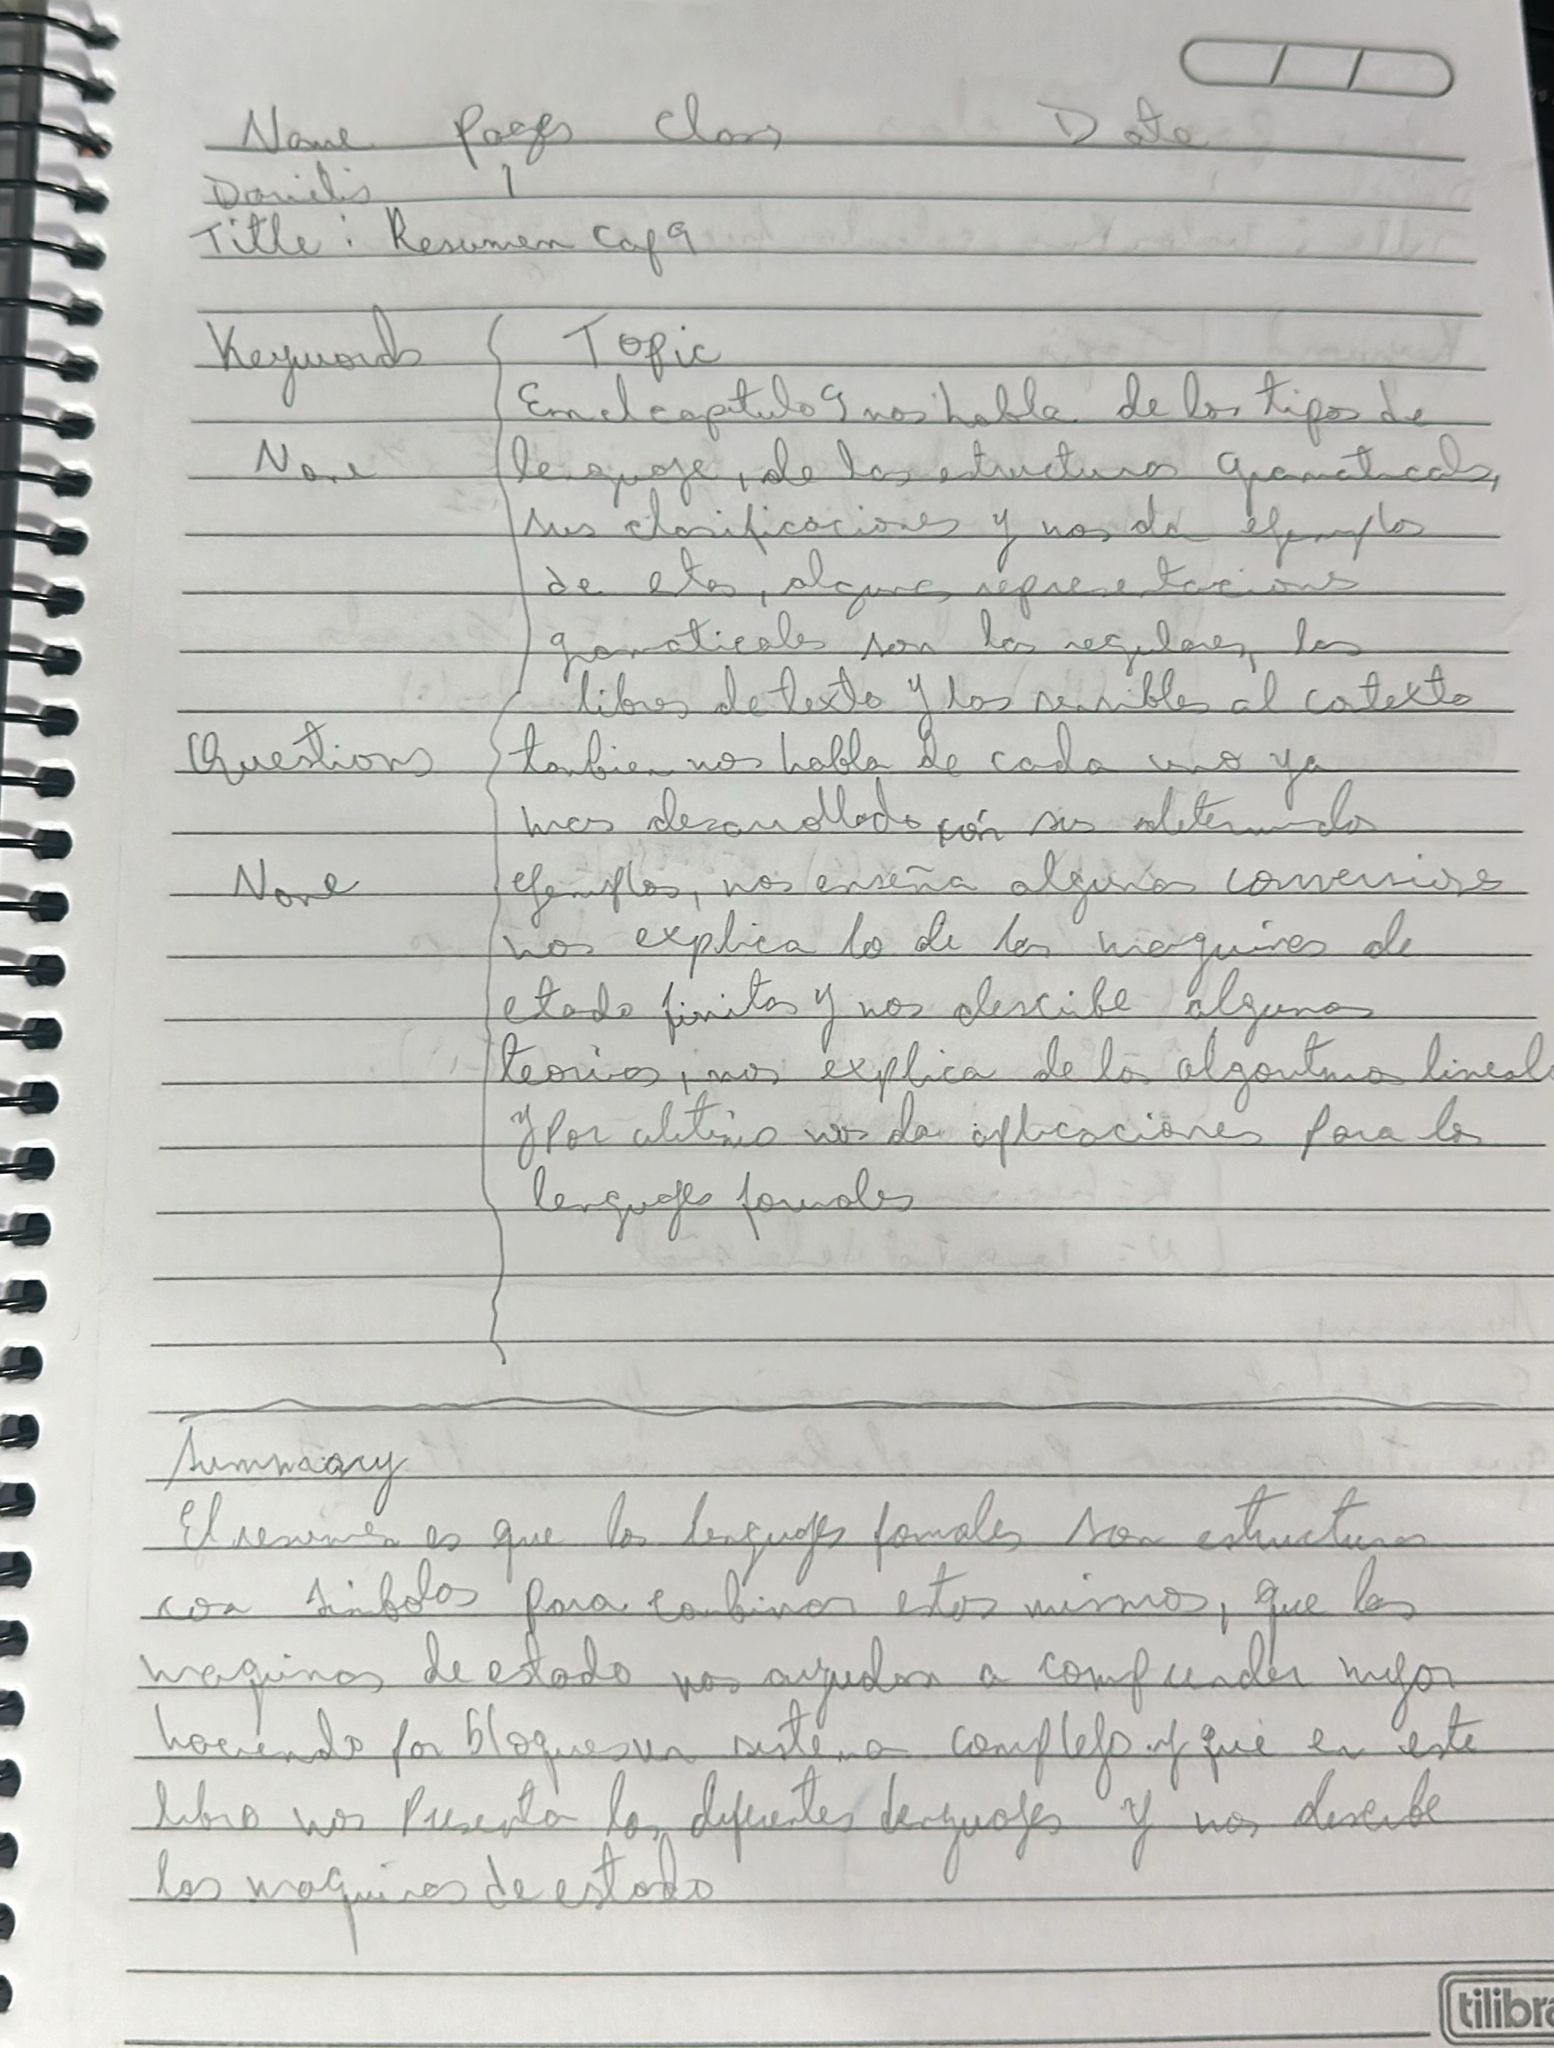 Name Pages Class Date
Danielis 1
Title: Resumen Cap 9
Keywords Topic
En el capitulo 9 nos habla de los tipos de
None lenguaje, de las estructuras gramaticals,
sus clasificaciones y nos da ejemplos
de etas, algunas representacions
gramaticales son las regulares, las
libres de texto y las sensibles al cotexto
Questions tanbien nos habla de cada uno ya
mas desarrollado con sus determindos
None ejemplos, nos enseña algunas conversiones
nos explica lo de las maquinas de
etado finitas y nos describe algunas
teorias, nos explica de los algoritmos lineal
y por ultimo nos da aplicaciones para los
lenguajes formales
Summary
El resumen es que los lenguajes formales son estructuras
con simbolos para conbinar estos mismos, que las
maquinas de estado nos ayudan a comprender mejor
haciendo por bloques un sistema complejo y que en este
libro nos presenta los diferentes lenguajes y nos describe
las maquinas de estado
tilibra